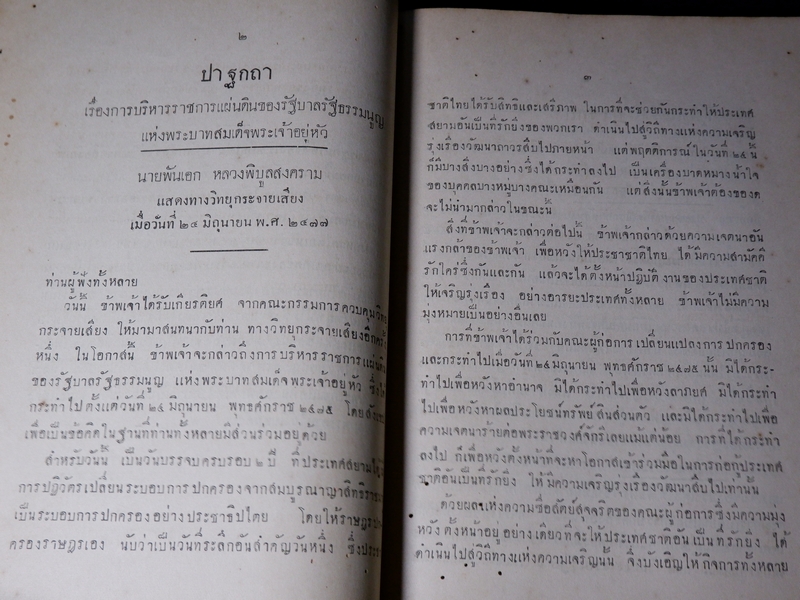 ๒
ปาฐกถา
เรื่องการบริหารราชการแผ่นดินของรัฐบาลรัฐธรรมนูญ
แห่งพระบาทสมเด็จพระเจ้าอยู่หัว
นายพันเอก หลวงพิบูลสงคราม
แสดงทางวิทยุกระจายเสียง
เมื่อวันที่ ๒๔ มิถุนายน พ.ศ. ๒๔๗๗
ท่านผู้ฟังทั้งหลาย
วันนี้ ข้าพเจ้าได้รับเกียรติยศ จากคณะกรรมการควบคุม
กระจายเสียง ให้มามาสนทนากับท่าน ทางวิทยุกระจายเสียงอีก
หนึ่ง ในโอกาสนี้ ข้าพเจ้าจะกล่าวถึงการบริหารราชการ
ของรัฐบาลรัฐธรรมนูญ แห่งพระบาทสมเด็จพระเจ้าอยู่หัว
กระทำไปตั้งแต่วันที่ ๒๔ มิถุนายน พุทธศักราช ๒๔๗๕ โดย
เพื่อเป็นข้อคิดในฐานที่ท่านทั้งหลายมีส่วนร่วมอยู่ด้วย
สำหรับวันนี้ เป็นวันบรรจบครบรอบ ๒ ปี ที่ประเทศสยาม
การปฏิวัติเปลี่ยนระบอบการปกครองจากสมบูรณาญาสิทธิ
เป็นระบอบการปกครองอย่างประชาธิปไตย โดยให้ราษฎร
ครองราษฎรเอง นับว่าเป็นวันที่ระลึกอันสำคัญวันหนึ่ง ซึ่ง
๓
ชาติไทยได้รับสิทธิและเสรีภาพ ในการที่จะช่วยกันกระทำให้ประเทศ
สยามอันเป็นที่รักยิ่งของพวกเรา ดำเนินไปสู่วิถีทางแห่งความเจริญ
รุ่งเรืองวัฒนาถาวรสืบไปภายหน้า แต่พฤตติการณ์ ในวันที่ ๒๔ นี้
ก็มีบางสิ่งบางอย่างซึ่งได้กระทำลงไป เป็นเครื่องบาดหมางน้ำใจ
ของบุคคลบางหมู่บางคณะเหมือนกัน แต่สิ่งนั้นข้าพเจ้าต้องของด
จะไม่นำมากล่าวในขณะนี้
สิ่งที่ข้าพเจ้าจะกล่าวต่อไปนี้ ข้าพเจ้ากล่าวด้วยความเจตนาอัน
แรงกล้าของข้าพเจ้า เพื่อหวังให้ประชาชาติไทย ได้มีความสามัคคี
รักใคร่ซึ่งกันและกัน แล้วจะได้ตั้งหน้าปฏิบัติ งานของประเทศชาติ
ให้เจริญรุ่งเรือง อย่างอารยะประเทศทั้งหลาย ข้าพเจ้าไม่มีความ
มุ่งหมายเป็นอย่างอื่นเลย
การที่ข้าพเจ้าได้ร่วมกับคณะผู้ก่อการ เปลี่ยนแปลงการ ปกครอง
และกระทำไปเมื่อวันที่ ๒๔ มิถุนายน พุทธศักราช ๒๔๗๕ นั้น มิได้กระ-
ทำไปเพื่อหวังหาอำนาจ มิได้กระทำไปเพื่อหวังลาภยศ มิได้กระทำ
ไปเพื่อหวังหาผลประโยชน์ทรัพย์สินส่วนตัว และมิได้กระทำไปเพื่อ
ความเจตนาร้ายต่อพระราชวงศ์จักรีเลยแม้แต่น้อย การที่ได้กระทำ
ลงไป ก็เพื่อหวังตั้งหน้าที่จะหาโอกาสเข้าร่วมมือในการก่อกู้ประเทศ
ชาติอันเป็นที่รักยิ่ง ให้มีความเจริญรุ่งเรืองวัฒนาสืบไปเท่านั้น
ด้วยผลแห่งความซื่อสัตย์สุจริตของคณะผู้ก่อการซึ่งมีความมุ่ง
หวังตั้งหน้าอยู่อย่างเดียวที่จะให้ประเทศชาติอันเป็นที่รักยิ่ง ได้
ดำเนินไปสู่วิถีทางแห่งความเจริญนั้น จึงบังเอิญให้กิจการทั้งหลาย